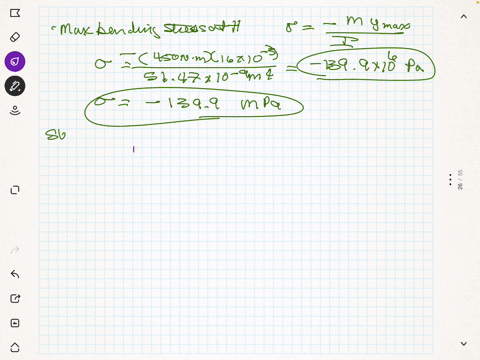 • Max bending stress at H σ = - M ymax / I
σ = -(450 N·m)(16 x 10^-3) / 51.47 x 10^-9 m^4 = -139.9 x 10^6 Pa
σ = - 139.9 MPa
86
26 / 55